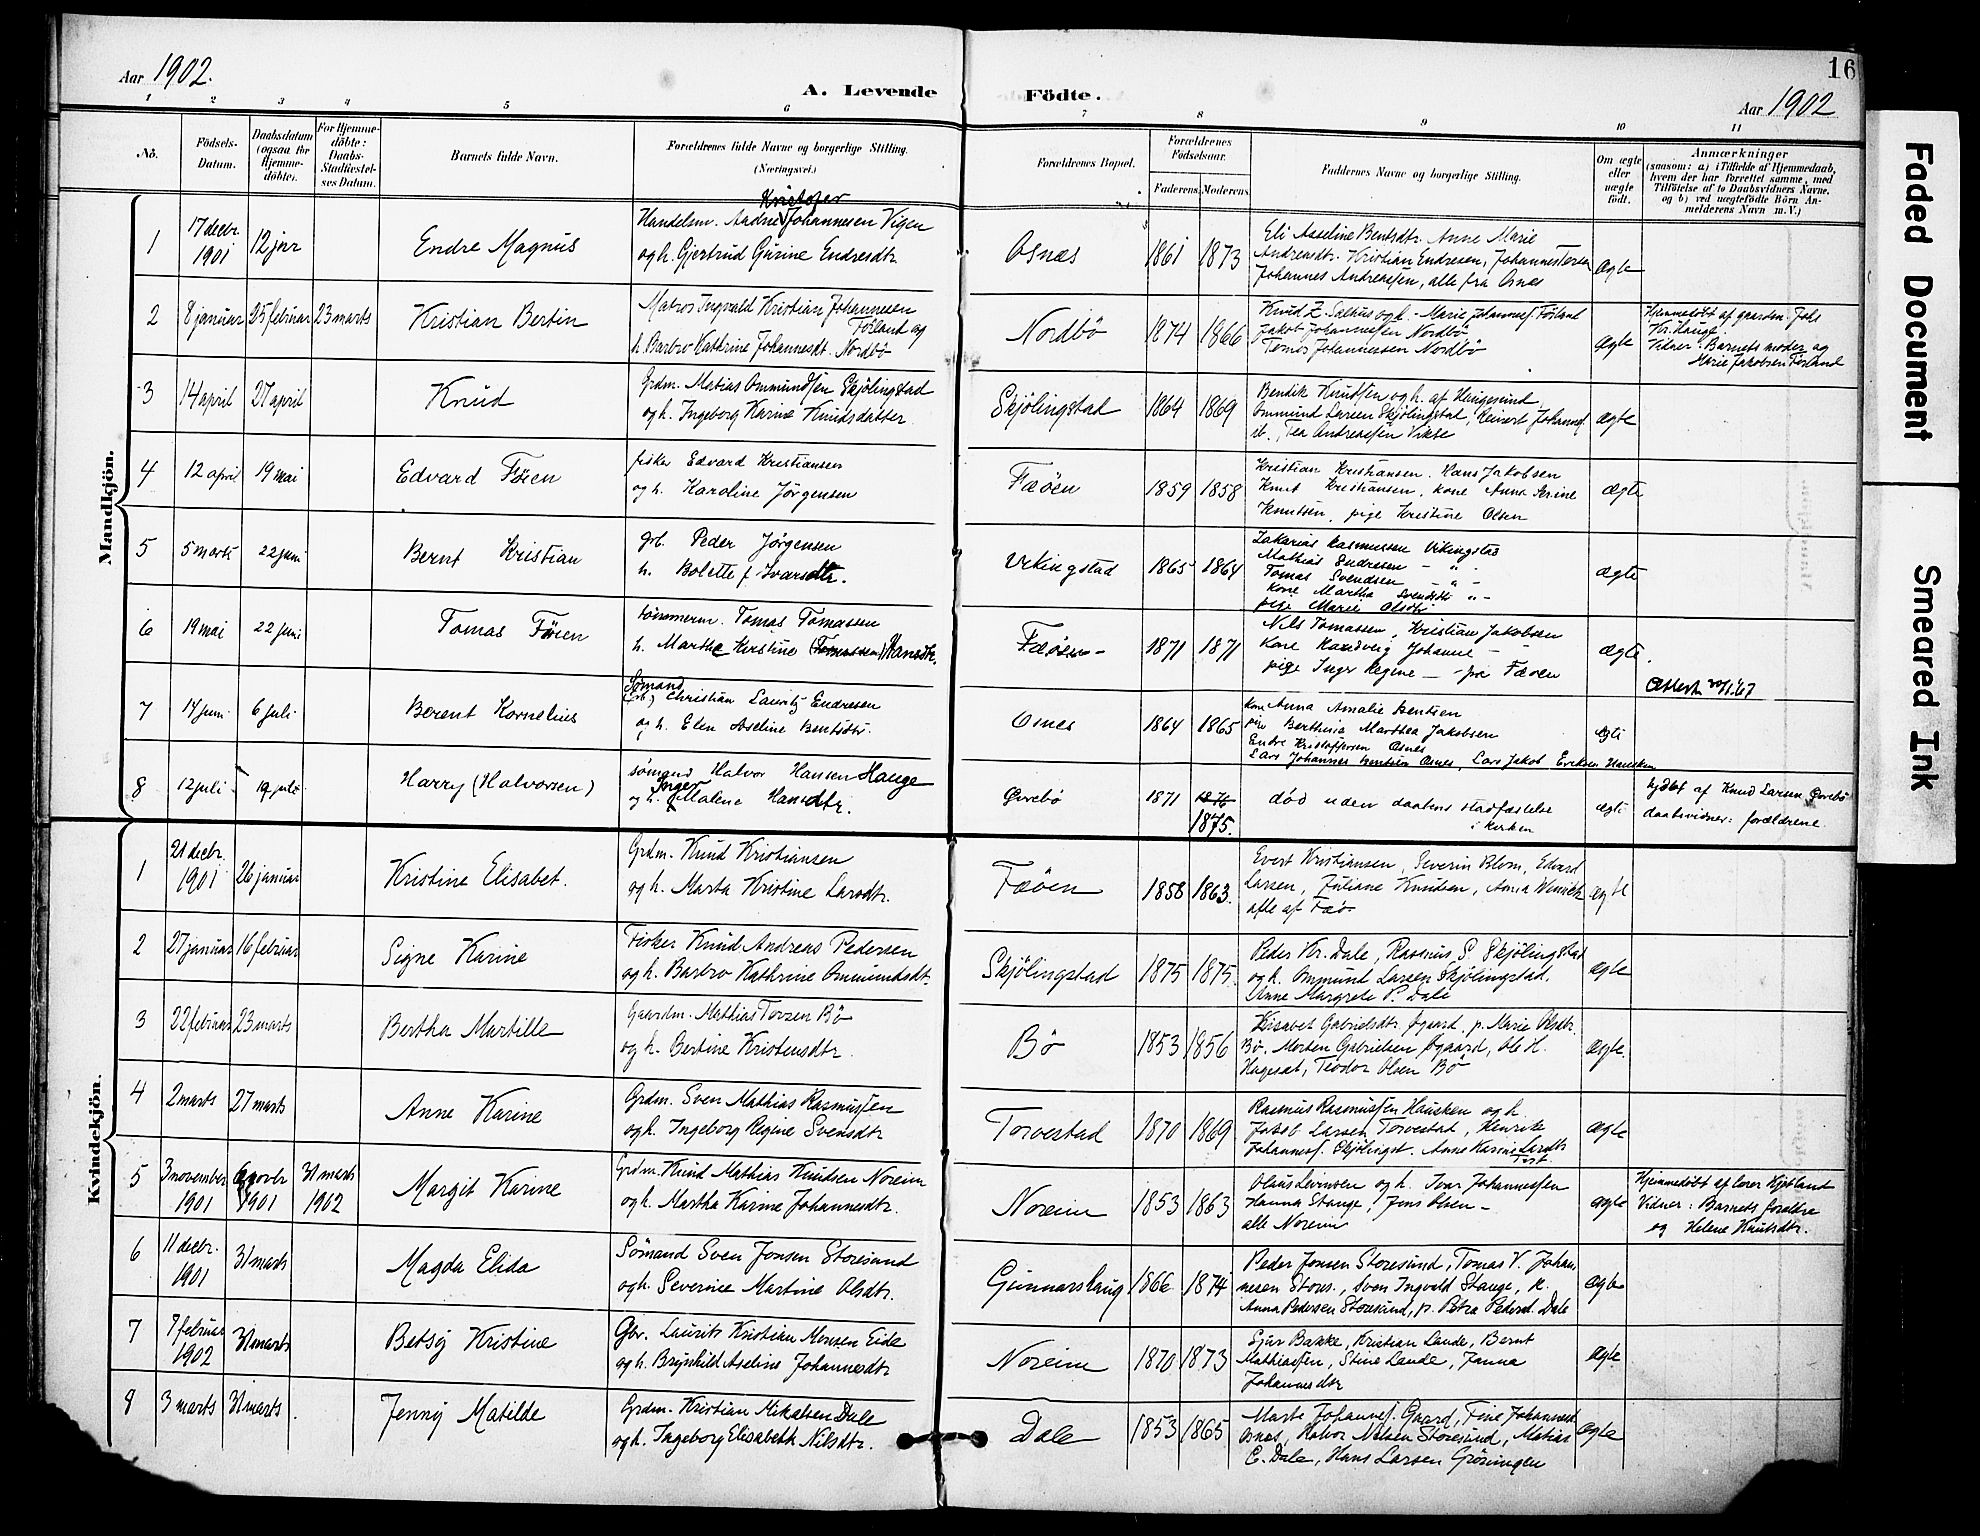 Aar 1902.
A. Levende Födte.
Aar 1902
16
1 2 3 4 5 6 7 8 9 10 11
No.
Födsels-
Datum.
Daabsdatum
(ogsaa for
Hjemme-
döbte).
For Hjemme-
döbte:
Daabs-
Stadfæstel-
ses Datum.
Barnets fulde Navn.
Forældrenes fulde Navne og borgerlige Stilling.
(Næringsvei.)
Forældrenes Bopæl.
Forældrenes
Födselsaar.
Faderens. Moderens.
Faddernes Navne og borgerlige Stilling.
Om ægte
eller
uægte
födt.
Anmærkninger
(saasom: a) i Tilfælde af Hjemmedaab,
hvem der har forrettet samme, med
Tilföielse af to Daabsvidners Navne,
og b) ved uægtefödte Börn An-
melderens Navn m. V.)
Mandkjön.
1
17 decbr.
1901
12 jan
Endre Magnus
Kristofer
Handelsm. Aadne Johannesen Vigen
og h. Gjertrud Gurine Endresdtr
Osnes
1861
1873
Eli Asseline Bentsdtr. Anne Marie
Andreasdtr. Kristian Endresen, Johannes
Johannes Andreassen, alle fra Osnes
ægte
2
8 januar
25 februar
23 marts
Kristian Bertin
Matros Ingvald Kristian Johannesen
Förland og
h. Barbro Kathrine Johannesdt. Nordbö
Nordbö
1874
1866
Knud Z. Salhus og h. - Marie Johannesf Förland
Jakob Johannessen Nordbö
Tomas Johannessen Nordbö
ægte
Hjemmedöbt af gaardm.
Kr. Hauge.
Vidner: Barnets moder og
Marie Jakobsen Förland
3
14 april
27 april
Knud
Grdm. Matias Ommundsen Skjölingstad
og h. Ingeborg Karine Knudsdatter
Skjölingstad
1864
1869
Bendik Knudsen og h. af Haugesund,
Ommund Larsen Skjölingstad, Reinert Johannes.
ib., Tea Andreassen Vikse
ægte
4
12 april
19 mai
Edvard Föien
fisker Edvard Kristiansen
og h. Karoline Jörgensen
Fæöen
1859
1858
Kristian Kristiansen, Hans Jakobsen
Knut Kristiansen, kone Anna Serine
Knutsen, pige Kristine Olsen
ægte
5
5 marts
22 juni
Bernt Kristian
gb. Peder Jörgensen
h. Bolette f. Ivarsdtr.
Vikingstad
1865
1864
Zakarias Rasmussen Vikingstad
Mathias Endresen - " -
Tomas Svendsen - " -
Kone Martha Svendsdtr " -
pige Marie Olsdtr
ægte
6
19 mai
22 juni
Tomas Föien
tömmerm. Tomas Tomassen
h. Marthe Kirstine (Tomassen) Hansdtr.
Fæöen -
1871
1871
Nils Tomassen, Kristian Jakobsen
Kone Randveig Johanne -
pige Inger Regine - fra Fæöen
ægte.
7
14 juni
6 juli
Berent Kornelius
Sömand
Christian Lauritz Endresen
og h. Elen Aseline Bentsdtr.
Osnes
1864
1865
kone Anna Amalie Bentsen
pige Berthina Marthea Jakobsen
Endre Kristoffersen Osnes
Lars Johannes Bentsen Osnes, Lars Jakob Eriksen Hausken
ægte
Attest 20/1.67
8
12 juli
19 juli
Harry (Halvorsen)
sömand Halvor Hansen Hauge
Inger
og h. Malene Hansdtr.
Örebö
1871
1876
1875.
död uden daabens stadfæstelse
i kirken
ægte
hjdbt af Knud Larsen Örebö
daabsvidner: forældrene
Kvindekjön.
1
21 decbr.
1901
26 januar
Kristine Elisabet.
Grdm. Knud Kristiansen
og h. Marta Kristine Larsdtr.
Fæöen
1858
1863.
Evert Kristiansen, Severin Blom, Edvard
Larsen, Juliane Knudsen, Anna
alle af Fæö.
ægte
2
27 januar
16 februar
Signe Karine
Fisker Knud Andreas Pedersen
og h. Barbro Kathrine Ommundsdt.
Skjölingstad
1875
1875.
Peder Kr. Dale, Rasmus S. Skjölingstad
og h. Ommund Larsen Skjölingstad.
Anne Margrete P. Dale
ægte
3
22 februar
23 marts
Bertha Martille
Gaardm. Mathias Torsen Bö
og h. Bertine Kristensdtr.
Bö
1853
1856
Elisabet Gabrielsdtr. Ögaard. p. Marie Olsdtr.
Bö. Morten Gabrielsen Ögaard, Ole H.
Hagesæt, Teodor Olsen Bö
ægte.
4
2 marts
27 marts
Anne Karine
Grdm. Sven Mathias Rasmussen
og h. Ingeborg Regine Svensdtr
Torvestad
1870
1869
Rasmus Rasmussen Hausken og h.
Jakob Larsen Torvestad, Henrik
Johannesf. Skjölingst. Anne Karine Larsdtr
Torst.
ægte
5
3 november
1901
novbr
1901
31 marts
1902
Margit Karine
Grdm. Knud Mathias Knudsen Noreim
og h. Martha Karine Johannesdtr.
Noreim
1853
1863
Olaus Levinsen og h. Ivar Johannessen
Hanna Stange, Jens Olsen -
alle Noreim
ægte
Hjemmedöbt af lærer Kjötland
Vidner: Barnets forældre
og Helene Knutsdtr.
6
11 decbr.
1901
31 marts
Magda Elida
Sömand Sven Jonsen Storesund
og h. Severine Martine Olsdtr.
Gunnarshaug
1866
1874
Peder Jonsen Storesund, Tomas V. Johan
nesen Stors., Sven Ingvald Stange, k.
Anna Pedersen Storesund, p. Petra Pedersd. Dale
ægte
7
7 februar
1902
31 marts
Betsy Kristine
Gbr. Laurits Kristian Monsen Eide
og h. Brynhild Aseline Johannesdtr
Noreim
1870
1873
Sjur Bakke, Kristian Lande, Bernt
Mathiassen, Stine Lande, Janna
Johannesdtr
ægte
8
3 marts
31 marts.
Jenny Matilde
Grdm. Kristian Mikalsen Dale
og h. Ingeborg Elisabeth Nilsdtr.
Dale
1853
1865
Marte Johannesf. Gaard, Tine Johannesd
Osnes, Halvor Nilsen Storesund, Matias
C. Dale, Hans Larsen Gröningen
ægte
Faded Document
Smeared Ink